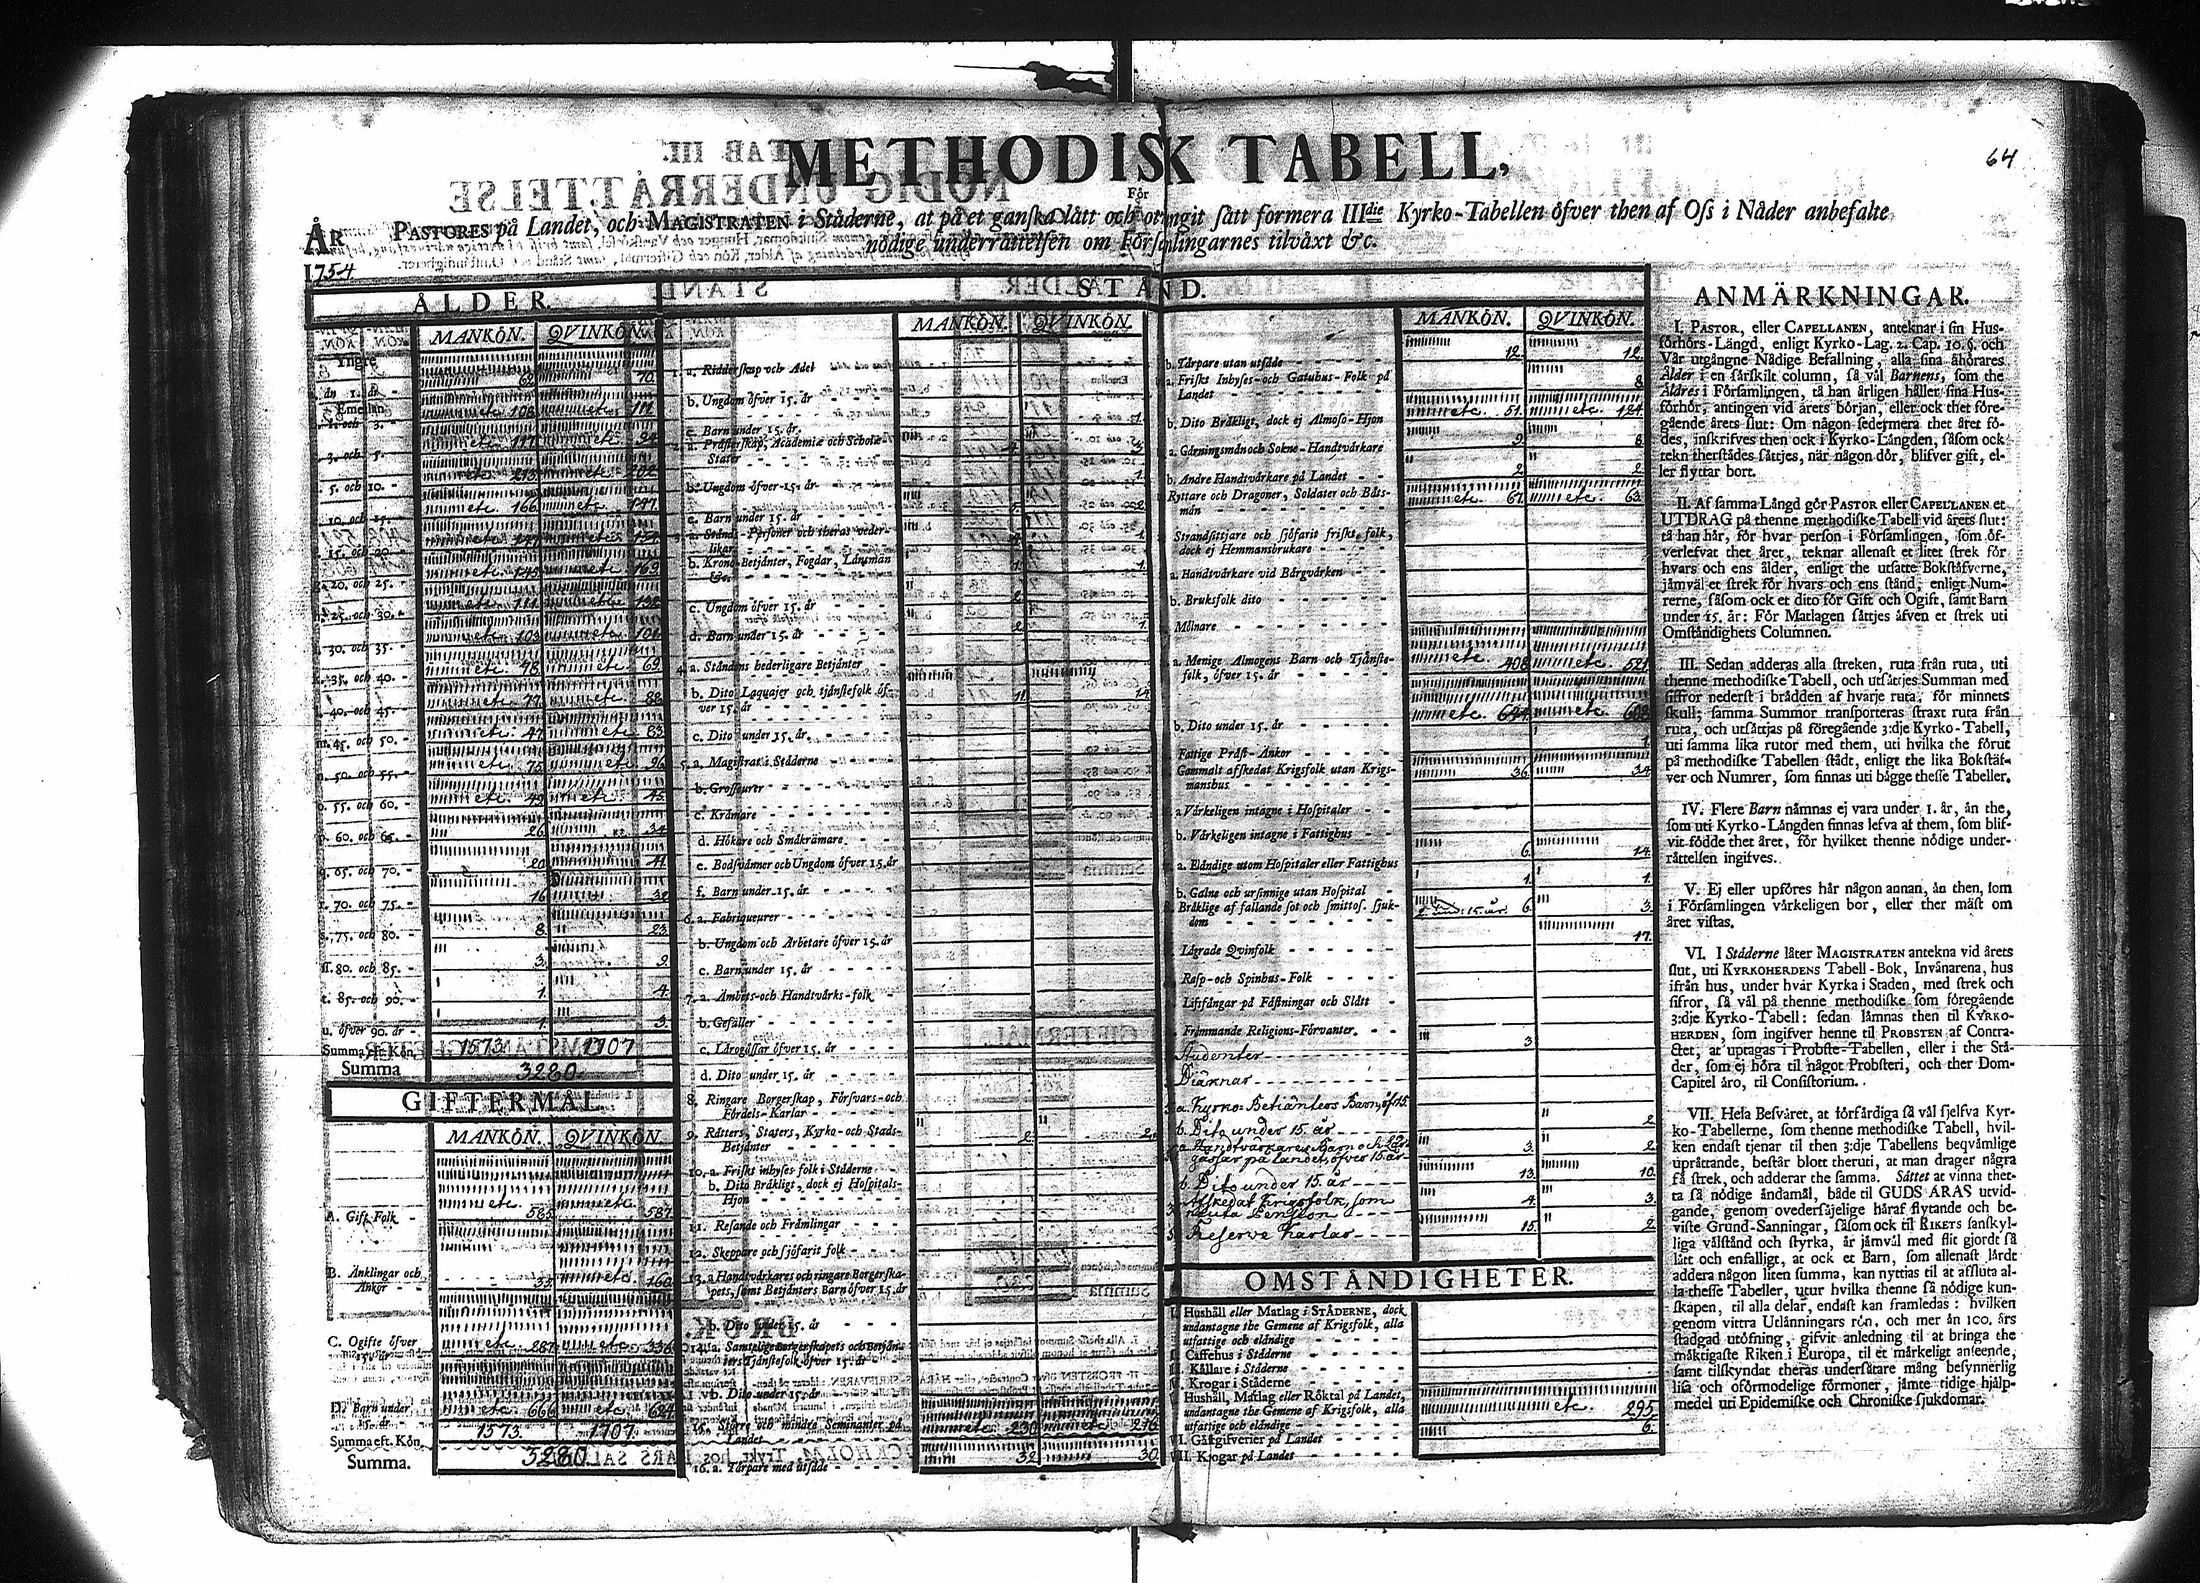 64
METHODISK TABELL,
För
PASTORES på Landet, och MAGISTRATEN i Städerne, at på et ganska lått och otvungit sått formera IIIdie Kyrko-Tabellen öfver then af Oss i Nåder anbefalte
nödige underråttelsen om Församlingarnes tilväxt &c.
ÅR
1754
ÅLDER.
MANKÖN. QVINKÖN.
Yngre
än 1. år - 62. 70.
Emellan
1. och 3. - etc. 108. etc. 111.
3. och 5. - etc. 117. etc. 94.
5. och 10. - etc. 213. etc. 202.
10. och 15. - etc. 166. etc. 147.
15. och 20. - etc. etc. 154.
20. och 25. - etc. 145. etc. 169.
25. och 30. - etc. 111. etc. 132.
30. och 35. - etc. 103. etc. 101.
35. och 40. - etc. 78. etc. 69.
40. och 45. - etc. 77. etc. 88.
m. 45. och 50. - etc. 47. etc. 83.
n. 50. och 55. - etc. 75. etc. 96.
o. 55. och 60. - etc. 49. etc. 45.
p. 60. och 65. - 26. 34.
q. 65. och 70. - 20. 41.
r. 70. och 75. - 16. 32.
s. 75. och 80. - 8. 23.
ſſ. 80. och 85. - 3. 9.
t. 85. och 90. - 1. 4.
u. öfver 90. år - 1. 3.
Summa eft. Kön. 1573. 1707
Summa 3280.
GIFTERMÅL.
MANKÖN. QVINKÖN.
A. Gift Folk - etc. 585. etc. 587.
B. Änklingar och
Änkor - - 35. etc. 160.
C. Ogifte öfver
15. år - etc. 287. etc. 336.
D. Barn under
15. år - etc. 666. etc. 624.
Summa eft. Kön. 1573. 1707.
Summa. 3280.
STÅND.
MANKÖN. QVINKÖN.
1. a. Ridderskap och Adel
b. Ungdom öfver 15. år - 1.
c. Barn under 15. år.
2. a. Prästerskap, Academiæ och Scholæ
Stater - 4. 3.
b. Ungdom öfver 15. år - 1.
c. Barn under 15. år 5. 2.
3. a. Stånds-Personer och theras vederlikar 1.
b. Krono-Betjänter, Fogdar, Länsman
&c. 1. 1.
c. Ungdom öfver 15. år 2.
d. Barn under 15. år 2. 1.
4. a. Ståndens hederligare Betjänter
b. Dito Laquajer och tjänstefolk öfver
15. år 11. 14.
c. Dito under 15. år.
5. a. Magistrat i Städerne
b. Grosseurer
c. Krämare
d. Hökare och Småkrämare
e. Bodsvänner och Ungdom öfver 15. år
f. Barn under 15. år.
6. a. Fabriqueurer
b. Ungdom och Arbetare öfver 15. år
c. Barn under 15. år
7. a. Ämbets- och Handtvärks-folk
b. Gesäller
c. Lärogässar öfver 15. år
d. Dito under 15. år
8. Ringare Borgerskap, Försvars- och
Fördels-Karlar
9. Rätters, Staters, Kyrko- och Stads-
Betjänter 2. 2.
10. a. Friskt inhyses folk i Städerne
b. Dito Bräkligt, dock ej Hospitals-
Hjon
11. Resande och Främlingar
12. Skeppare och sjöfarit folk
13. a Handtvärkares och ringare Borgerska-
pets, samt Betjänters Barn öfver 15. år
b. Dito under 15. år
14. a. Samtelige Borgerskapets och Betjän-
ters Tjänstefolk öfver 15. år
b. Dito under 15. år
15. Större och mindre Seminanter på
Landet etc. 230. etc. 216.
16. a. Torpare med utsäde 32. 30.
MANKÖN. QVINKÖN.
b. Torpare utan utsäde 12. 12.
a. Friskt Inhyses- och Gatuhus-Folk på
Landet 8.
b. Dito Bräkligt, dock ej Almoso-Hjon etc. 51. etc. 124.
a. Gärningsmän och Sokne-Handtvärkare 9. 8.
b. Andre Handtvärkare på Landet 2. 2.
Ryttare och Dragoner, Soldater och Båts-
män etc. 67. etc. 63.
Strandsittjare och sjöfarit friskt folk,
dock ej Hemmansbrukare
a. Handtvärkare vid Bärgvärken
b. Bruksfolk dito
Mölnare
a. Menige Almogens Barn och Tjänste-
folk, öfver 15. år etc. 408. etc. 521.
b. Dito under 15. år etc. 624. etc. 608.
Fattige Präst-Änkor 1.
Gammalt afskedat Krigsfolk utan Krigs-
manshus 36. 34.
a. Värkeligen intagne i Hospitaler
b. Värkeligen intagne i Fattighus
a. Eländige utom Hospitaler eller Fattighus 6. 14.
b. Galne och ursinnige utan Hospital 1. 1.
Bräklige af fallande sot och smittos. sjuk-
dom 2 und: 15. år. 6. 3.
Lägrade Qvinfolk 17.
Rasp- och Spinhus-Folk
Lifsfångar på Fästningar och Slått
Främmande Religions-Förvanter.
Studenter 3.
Diäknar
a. Kyrko-Betjänters Barn, öf: 15.
b. Dito under 15. år 2.
a. Handtvärkares Barn och
gåssar på landet, öfver 15 år 3. 2.
b. Dito under 15. år 13. 10.
Afskedat Krigsfolk, som
niuta Pension 4. 3.
Reserve Karlar 15. 2.
OMSTÄNDIGHETER.
I. Hushåll eller Matlag i STÄDERNE, dock
undantagne the Gemene af Krigsfolk, alla
utfattige och eländige
II. Caffehus i Städerne
III. Källare i Städerne
IV. Krogar i Städerne
V. Hushåll, Matlag eller Röktal på Landet,
undantagne the Gemene af Krigsfolk, alla
utfattige och eländige etc. 295.
VI. Gästgifverier på Landet 6.
VII. Krogar på Landet
ANMÄRKNINGAR.
I. PASTOR, eller CAPELLANEN, anteknar i sin Hus-
förhörs-Längd, enligt Kyrko-Lag. 2. Cap. 10. §. och
Vår utgångne Nådige Befallning, alla sina åhörares
Ålder i en särskilt column, så väl Barnens, som the
Äldres i Församlingen, tå han årligen håller sina Hus-
förhör, antingen vid årets början, eller ock thet före-
gående årets slut: Om någon sedermera thet året fö-
des, inskrifves then ock i Kyrko-Längden, såsom ock
tekn therstädes sättjes, när någon dör, blifver gift, el-
ler flyttar bort.
II. Af samma Längd gör PASTOR eller CAPELLANEN et
UTDRAG på thenne methodiske Tabell vid årets slut:
tå han här, för hvar person i Församlingen, som öf-
verlefvat thet året, teknar allenast et litet strek för
hvars och ens ålder, enligt the utsatte Bokstäfverne,
jämväl et strek för hvars och ens stånd, enligt Num-
rerne, såsom ock et dito för Gift och Ogift, samt Barn
under 15. år: För Matlagen sättjes äfven et strek uti
Omständighets Columnen.
III. Sedan adderas alla streken, ruta från ruta, uti
thenne methodiske Tabell, och utsättjes Summan med
siffror nederst i brädden af hvarje ruta, för minnets
skull; samma Summor transporteras straxt ruta från
ruta, och utsättjas på föregående 3:dje Kyrko-Tabell,
uti samma lika rutor med them, uti hvilka the förut
på methodiske Tabellen städt, enligt the lika Bokstäf-
ver och Numrer, som finnas uti bägge thesse Tabeller.
IV. Flere Barn nämnas ej vara under 1. år, än the,
som uti Kyrko-Längden finnas lefva af them, som blif-
vit födde thet året, för hvilket thenne nödige under-
rättelsen ingifves.
V. Ej eller upföres här någon annan, än then, som
i Församlingen värkeligen bor, eller ther mäst om
året vistas.
VI. I Städerne låter MAGISTRATEN antekna vid årets
slut, uti KYRKOHERDENS Tabell-Bok, Invånarena, hus
ifrån hus, under hvar Kyrka i Staden, med strek och
sifror, så väl på thenne methodiske som föregående
3:dje Kyrko-Tabell: sedan lämnas then til KYRKO-
HERDEN, som ingifver henne til PROBSTEN af Contra-
ctet, at uptagas i Probste-Tabellen, eller i the Stä-
der, som ej höra til något Probsteri, och ther Dom-
Capitel äro, til Consistorium.
VII. Hela Besväret, at förfärdiga så väl sjelfva Kyr-
ko-Tabellerne, som thenne methodiske Tabell, hvil-
ken endast tjenar til then 3:dje Tabellens beqvämlige
uprättande, består blott theruti, at man drager några
få strek, och adderar the samma. Sättet at vinna thet-
ta så nödige ändamål, både til GUDS ÄRAS utvid-
gande, genom ovedersäjelige häraf flytande och be-
viste Grund-Sanningar, såsom ock til RIKETS sanskyl-
liga välstånd och styrka, är jämväl med flit gjordt så
lätt och enfalligt, at ock et Barn, som allenast lärdt
addera någon liten summa, kan nyttias til at afsluta al-
la thesse Tabeller, utur hvilka thenne så nödige kun-
skapen, til alla delar, endast kan framledas: hvilken
genom vittra Utlänningars rön, och mer än 100. års
stadgad utöfning, gifvit anledning til at bringa the
mäktigaste Riken i Europa, til et märkeligt anseende,
samt tilskyndat theras undersåtare mång besynnerlig
lisa och oförmodelige förmoner, jämte tidige hjälp-
medel uti Epidemiske och Chroniske sjukdomar.